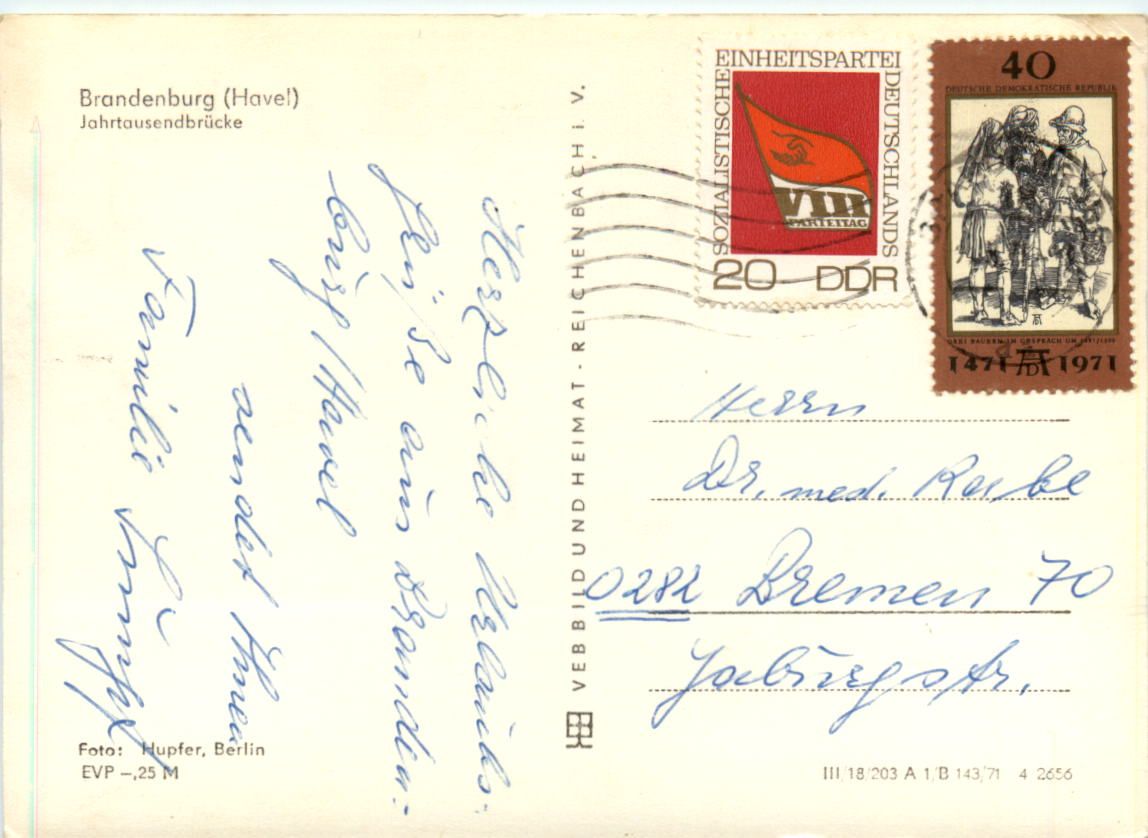 Brandenburg (Havel)
Jahrtausendbrücke
Herzliche Urlaubs-
grüße aus Branden-
burg/Havel
sendet Ihnen
Familie
Foto: Hupfer, Berlin
EVP –,25 M
VEB BILD UND HEIMAT · REICHENBACH i. V.
SOZIALISTISCHE
EINHEITSPARTEI
DEUTSCHLANDS
VIII.
PARTEITAG
20 DDR
40
DEUTSCHE DEMOKRATISCHE REPUBLIK
DREI BAUERN IM GESPRÄCH UM
1471 AD 1971
Herrn
Dr. med.
0282 Bremen 70
III/18/203 A 1/B 143/71 4 2656